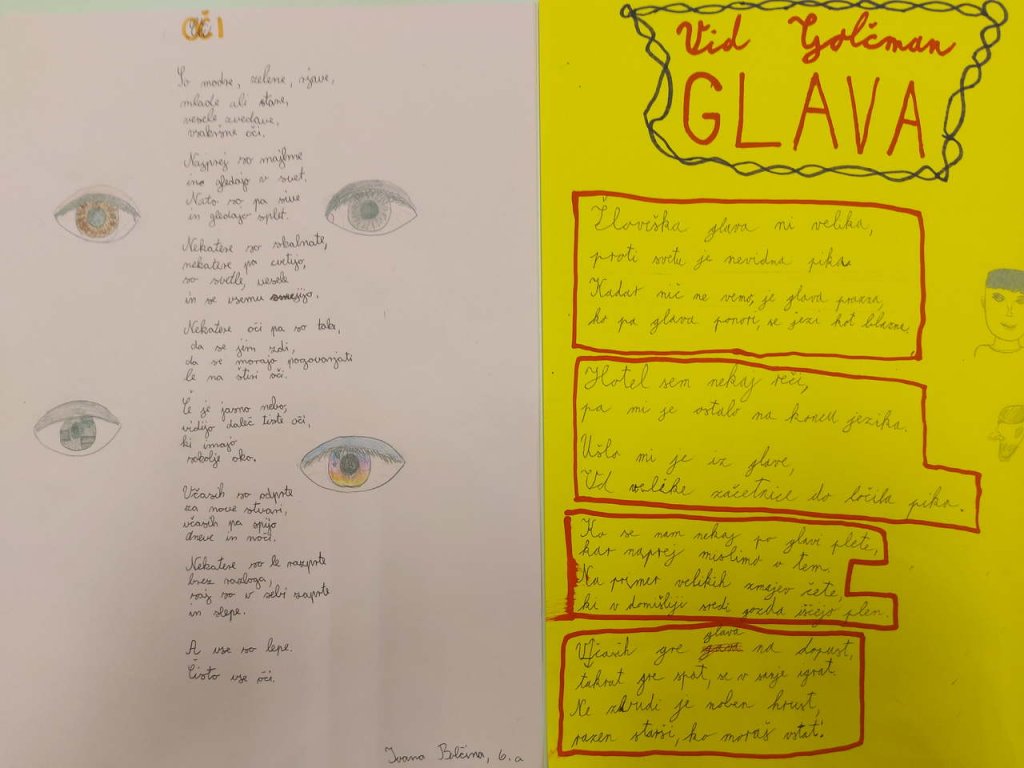 OČI
So modre, zelene, rjave,
mlade ali stare,
vesele zvedave,
vsakršne oči.
Najprej so majhne
ino gledajo v svet.
Nato so pa sive
in gledajo splet.
Nekatere so skalnate,
nekatere pa cvetijo,
so svetle, vesele
in se vsemu smejijo.
Nekatere oči pa so take,
da se jim zdi,
da se morajo pogovarjati
le na štiri oči.
Če je jasno nebo,
vidijo daleč tiste oči,
ki imajo
sokolje oko.
Včasih so odprte
za nove stvari,
včasih pa spijo
dneve in noči.
Nekatere so le razprte
brez razloga,
saj so v sebi zaprte
in slepe.
A vse so lepe.
Čisto vse oči.
Ivana Bolčina, 6.a
Vid Golčman
GLAVA
Človiška glava ni velika,
proti svetu je nevidna pika.
Kadar nič ne vemo, je glava prazna,
ko pa glava ponori, se jezi kot blazna.
Hotel sem nekaj reči,
pa mi je ostalo na koncu jezika.
Ušlo mi je iz glave,
Od velike začetnice do ločila pika.
Ko se nam nekaj po glavi plete,
kar naprej mislimo o tem.
Na primer velikih zmajev čete,
ki v domišljiji sredi gozda iščejo plen.
Včasih gre glava na dopust,
takrat gre spat, se v sanje igrat.
Ne zbudi je noben hrust,
razen starši, ko moraš vstat!